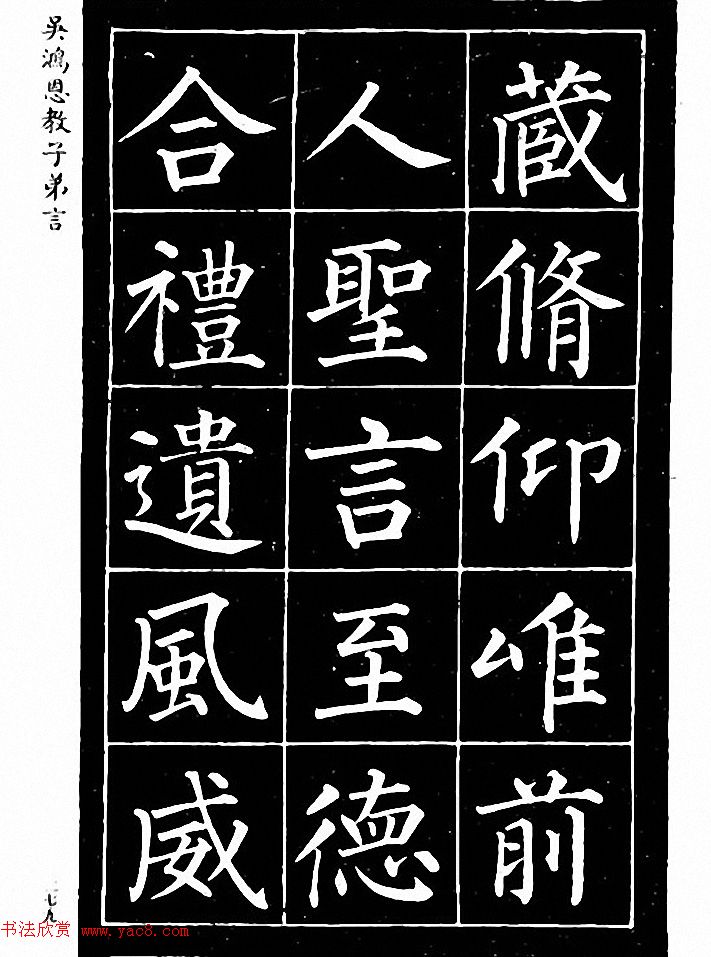 藏脩仰唯前
人聖言至德
合禮遺風威
吳鴻恩教子弟言
七九
书法欣赏 www.yac8.com